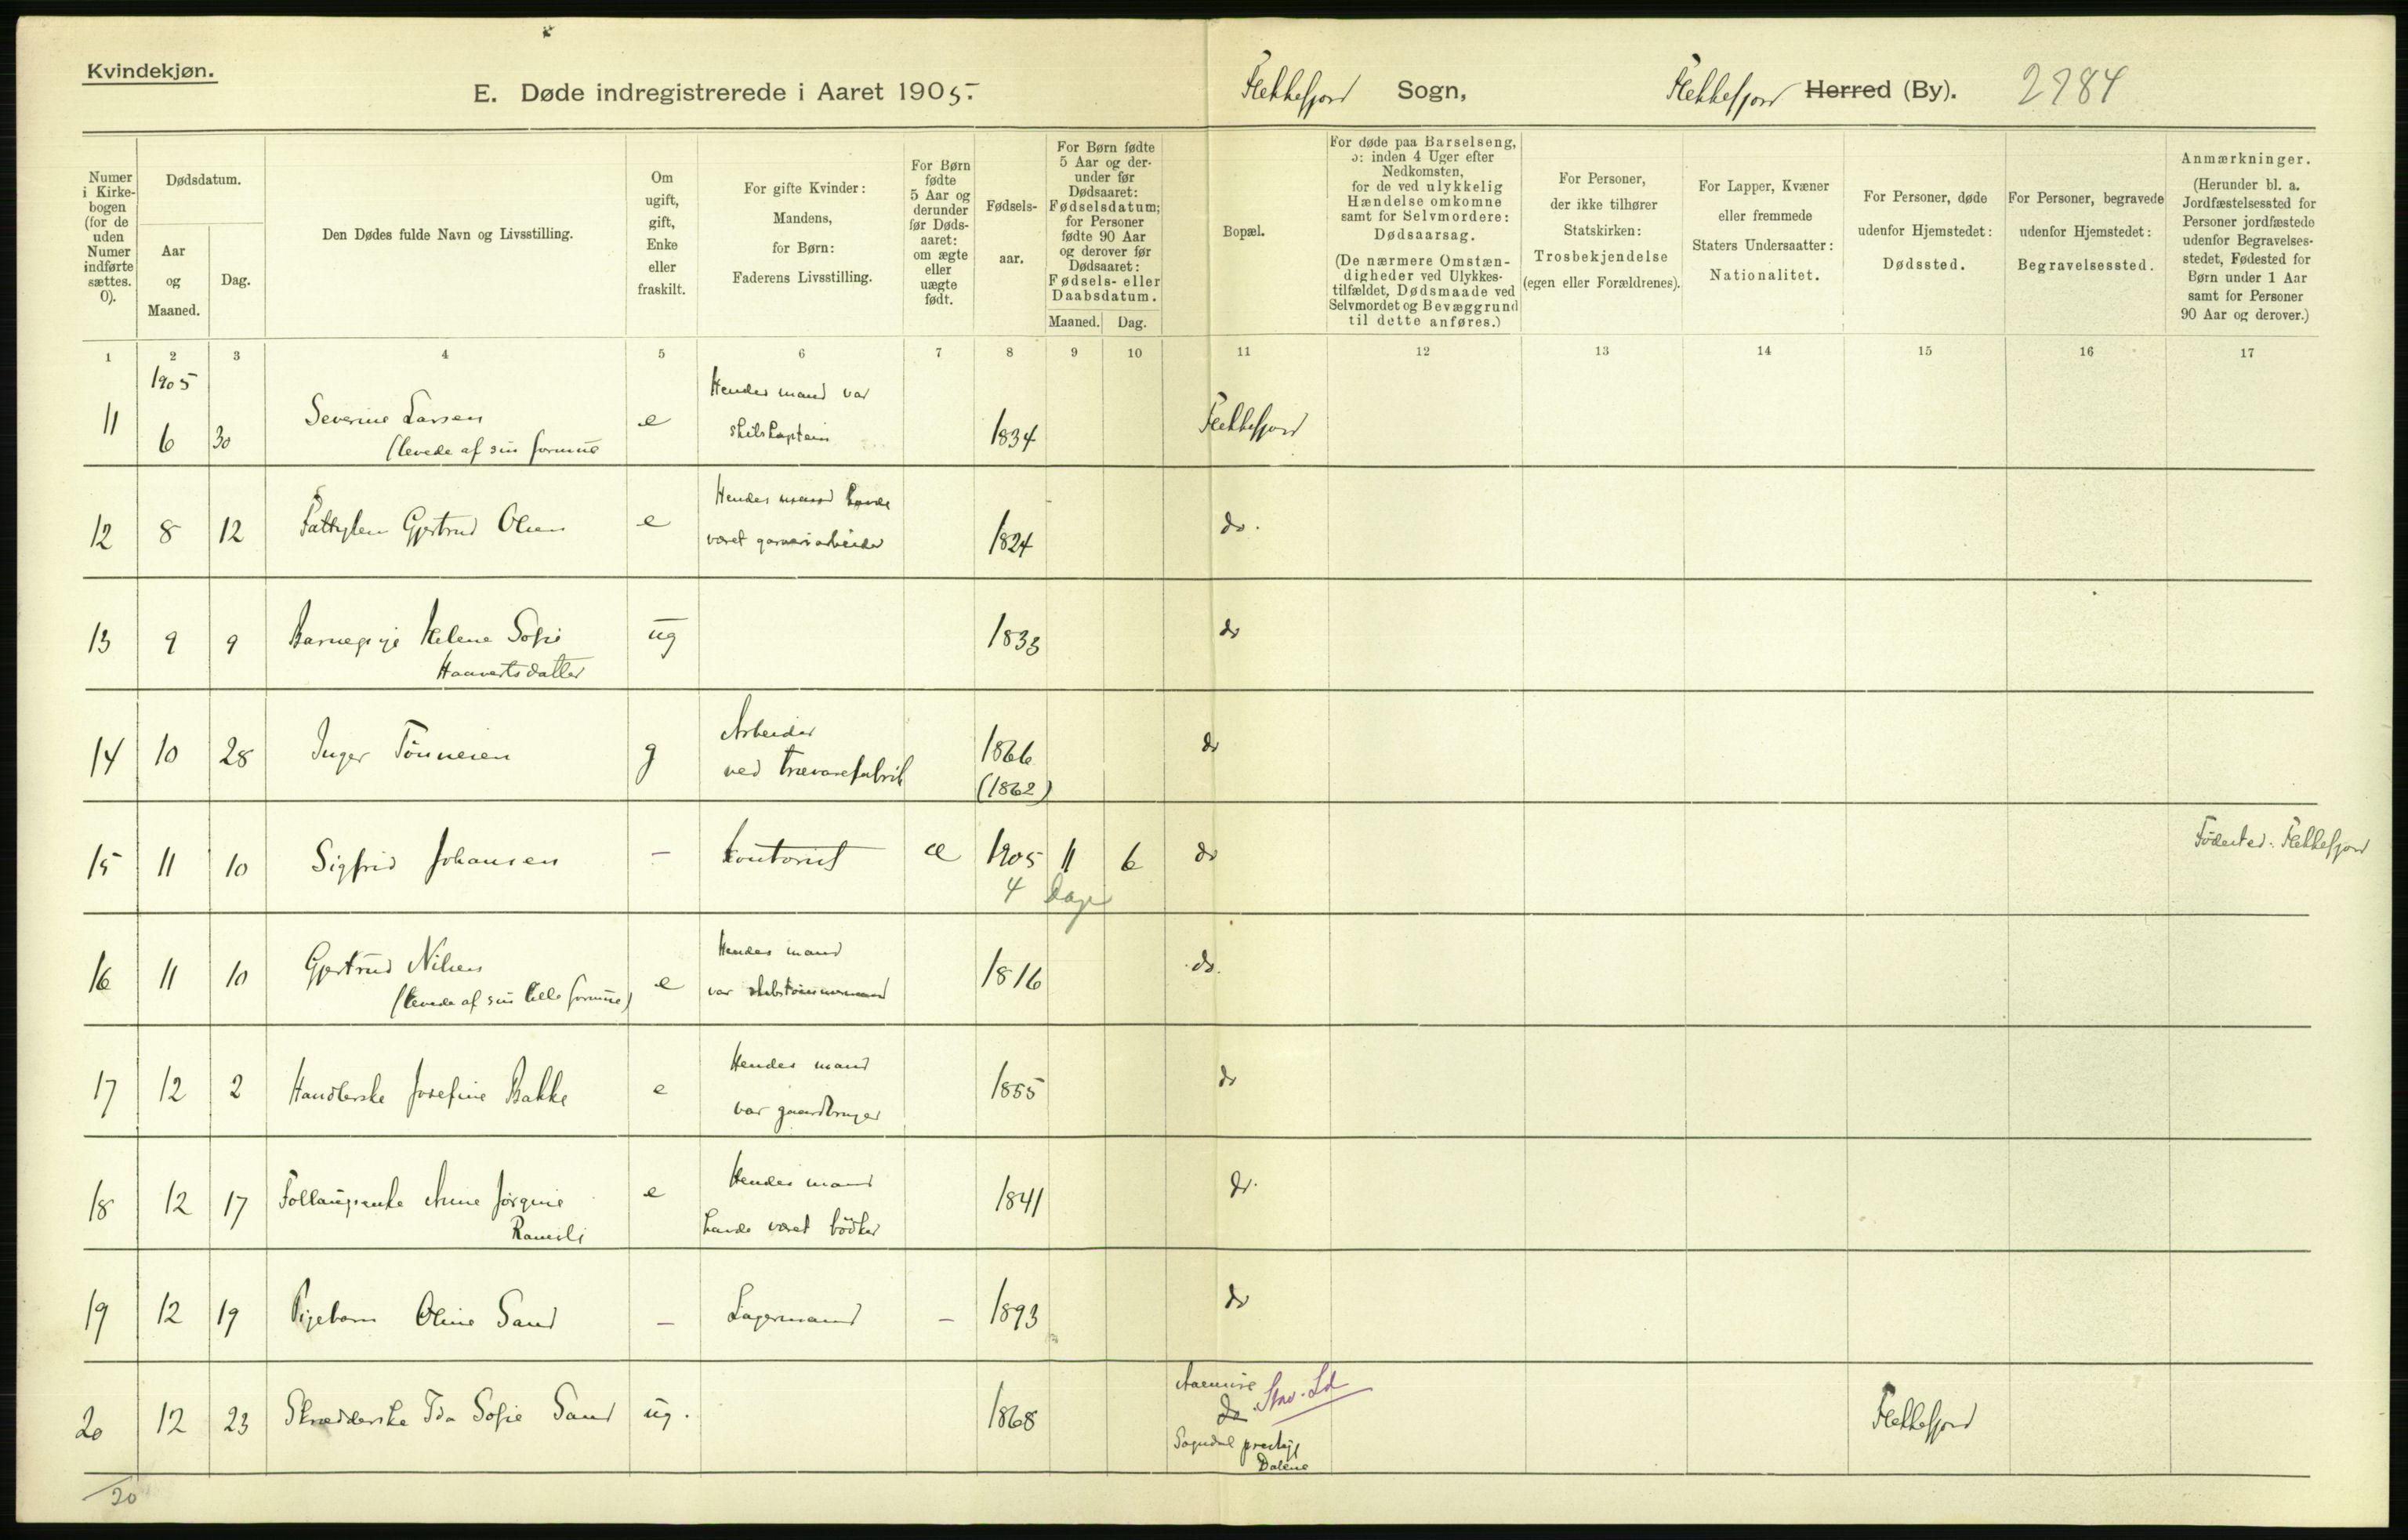 Kvindekjøn.
E. Døde indregistrerede i Aaret 1905.
Flekkefjord Sogn,
Flekkefjord Herred (By).
2984
Numer i Kirkebogen (for de uden Numer indførte sættes. 0).
Dødsdatum.
Aar og Maaned.
Dag.
Den Dødes fulde Navn og Livsstilling.
Om ugift, gift, Enke eller fraskilt.
For gifte Kvinder: Mandens, for Børn: Faderens Livsstilling.
For Børn fødte 5 Aar og derunder før Dødsaaret: om ægte eller uægte født.
Fødselsaar.
For Børn fødte 5 Aar og derunder før Dødsaaret: Fødselsdatum; for Personer fødte 90 Aar og derover før Dødsaaret: Fødsels- eller Daabsdatum.
Maaned. Dag.
Bopæl.
For døde paa Barselseng, ɔ: inden 4 Uger efter Nedkomsten, for de ved ulykkelig Hændelse omkomne samt for Selvmordere: Dødsaarsag. (De nærmere Omstændigheder ved Ulykkestilfældet, Dødsmaade ved Selvmordet og Bevæggrund til dette anføres.)
For Personer, der ikke tilhører Statskirken: Trosbekjendelse (egen eller Forældrenes).
For Lapper, Kvæner eller fremmede Staters Undersaatter: Nationalitet.
For Personer, døde udenfor Hjemstedet: Dødssted.
For Personer, begravede udenfor Hjemstedet: Begravelsessted.
Anmærkninger. (Herunder bl. a. Jordfæstelsessted for Personer jordfæstede udenfor Begravelsesstedet, Fødested for Børn under 1 Aar samt for Personer 90 Aar og derover.)
1 2 3 4 5 6 7 8 9 10 11 12 13 14 15 16 17
1905
11 6 30 Severine Larsen (levede af sin formue e Hendes mand var skibskaptein 1834 Flekkefjord
12 8 12 Gjertrud Olsen e Hendes mand havde været garveriarbeider 1824 do.
13 9 9 Barnepige Helene Sofie Haavertsdatter ug 1833 do
14 10 28 Inger Tönnesen g Arbeider ved trævarefabrik 1866 (1862) do
15 11 10 Sigfrid Johansen — kontorist æ 1905 11 6 do Födested: Flekkefjord
4 Dage
16 11 10 Gjertrud Nilsen (levede af sin lille formue) e Hendes mand var skibstömmermand 1816 do.
17 12 2 Handlerske Josefine Bakke e Hendes mand var gaardbruger 1855 do
18 12 17 Anne Jörgine Ramsli e Hendes mand havde været bödker 1841 do.
19 12 19 Pigebarn Oline Sand — Lagermand — 1893 do
20 12 23 Skrædderske Ida Sofie Sand ug. 1868 do Stav. Sd Sogndal prestegj Dalene Flekkefjord
20